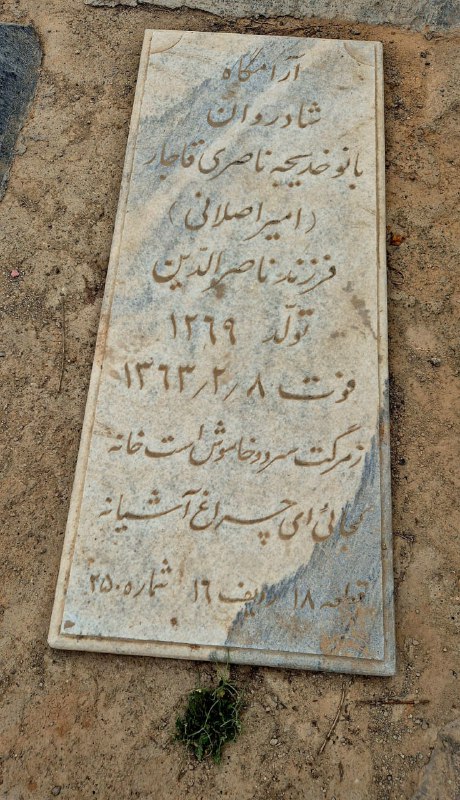 آرامگاه
شادروان
بانو خدیجه ناصری قاجار
(امیر اصلانی)
فرزند ناصرالدّین
تولّد ۱۲۶۹
فوت ۱۳۶۳/۲/۸
ز مرگت سرد و خاموش است خانه
کجائی ای چراغ آشیانه
قطعه ۱۸ ردیف ۱۶ شماره ۲۵۰